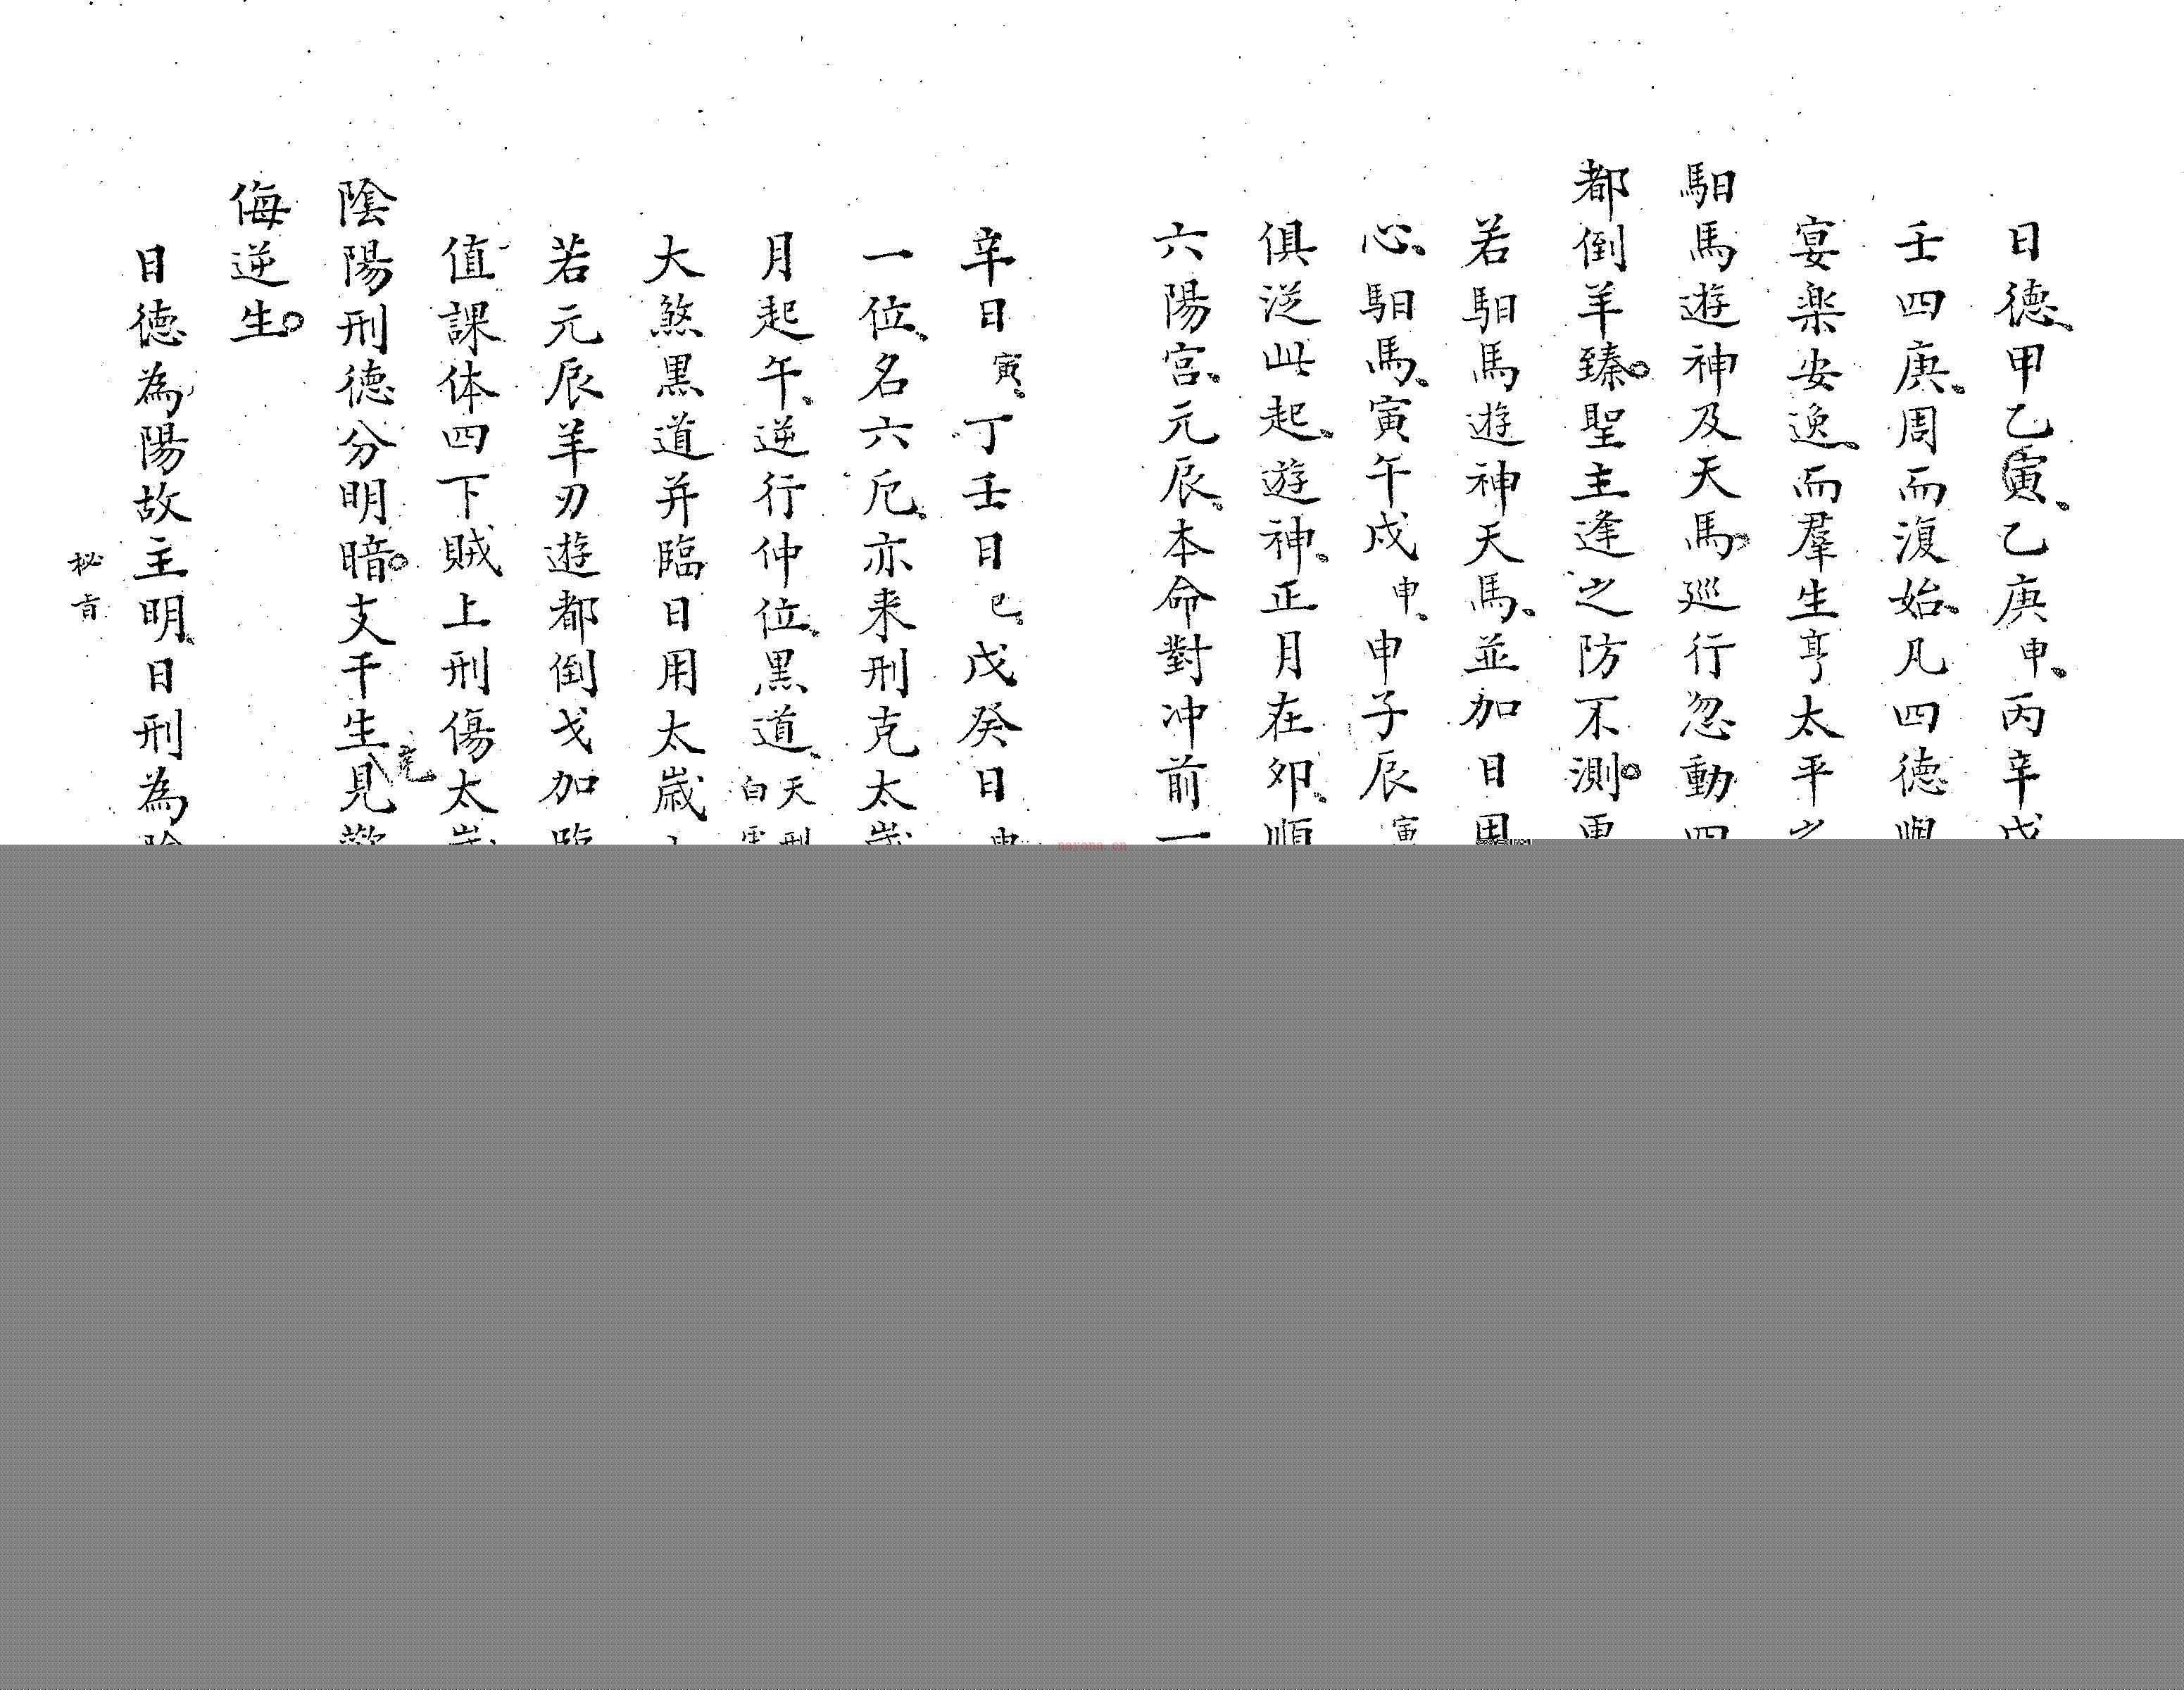 日德甲乙寅乙庚申丙辛戊
壬四庚周而復始凡四德
宴楽安逸而羣生亨太平之
馹馬遊神及天馬廵行忽動四
都倒羊臻聖主逢之防不測更
若馹馬遊神天馬並加日用
心馹馬寅午戌申申子辰寅
俱从此起遊神正月在卯順
六陽宮元辰本命對冲前一
辛日寅丁壬日巳戊癸日
一位名六厄亦来刑克太歲
月起午逆行仲位黒道天刑白
大煞黒道并臨日用太歲
若元辰羊刃遊都倒戈加臨
值課体四下賊上刑傷太歲
陰陽刑德分明暗支干生見
侮逆生
日德為陽故主明日刑為陰
秘旨
nayona.cn